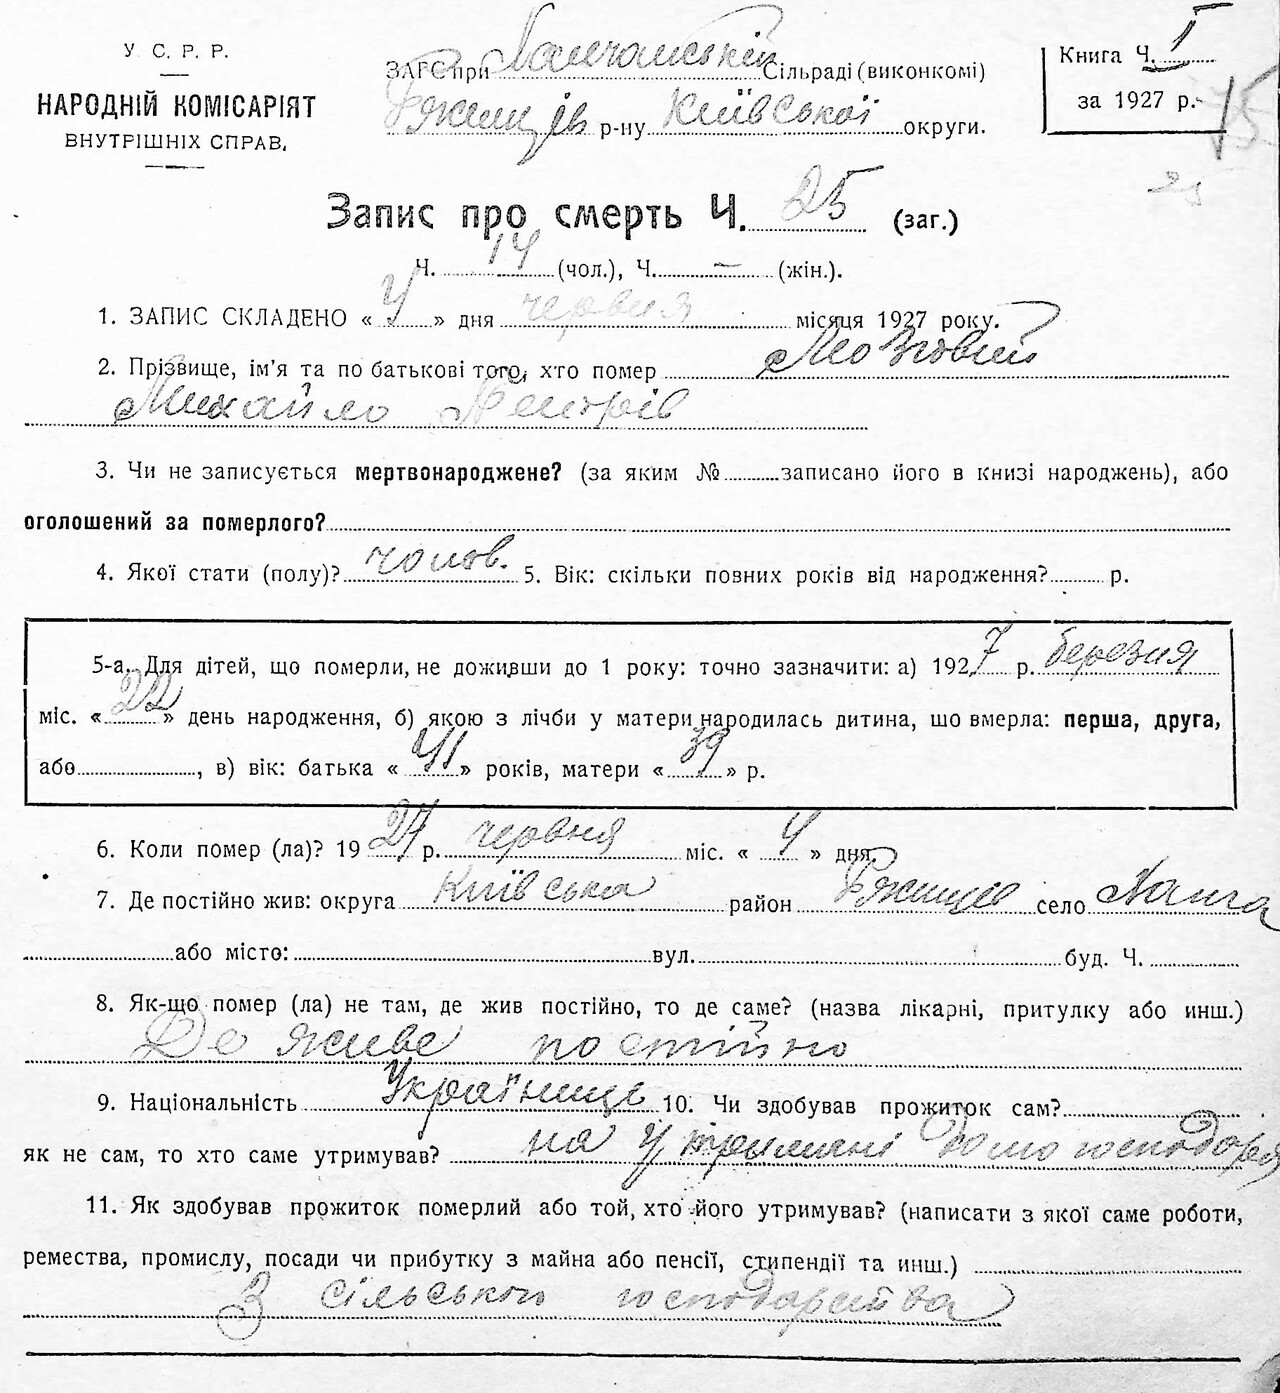 У. С. Р. Р.
НАРОДНІЙ КОМІСАРІЯТ
ВНУТРІШНІХ СПРАВ.
ЗАГС при Сільраді (виконкомі)
Ржищів р-ну Київської округи.
Книга Ч. I
за 1927 р.
75
25
Запис про смерть Ч. 25 (заг.)
Ч. 14 (чол.), Ч. — (жін.).
1. ЗАПИС СКЛАДЕНО « 4 » дня червня місяця 1927 року.
2. Прізвище, ім'я та по батькові того, хто помер Мозговий
Михайло Петрів
3. Чи не записується мертвонароджене? (за яким № записано його в книзі народжень), або
оголошений за померлого?
4. Якої стати (полу)? чолов. 5. Вік: скільки повних років від народження? р.
5-а. Для дітей, що померли, не доживши до 1 року: точно зазначити: а) 1927 р. березня
міс. « 22 » день народження, б) якою з лічби у матери народилась дитина, що вмерла: перша, друга,
або , в) вік: батька « 41 » років, матери « 39 » р.
6. Коли помер (ла)? 1927 р. червня міс. « 4 » дня.
7. Де постійно жив: округа Київська район Ржищев село
або місто: вул. буд. Ч.
8. Як-що помер (ла) не там, де жив постійно, то де саме? (назва лікарні, притулку або инш.)
Де живе постійно
9. Національність Українець 10. Чи здобував прожиток сам?
як не сам, то хто саме утримував? на утримані домогосподаря
11. Як здобував прожиток померлий або той, хто його утримував? (написати з якої саме роботи,
ремества, промислу, посади чи прибутку з майна або пенсії, стипендії та инш.)
З сільського господарства